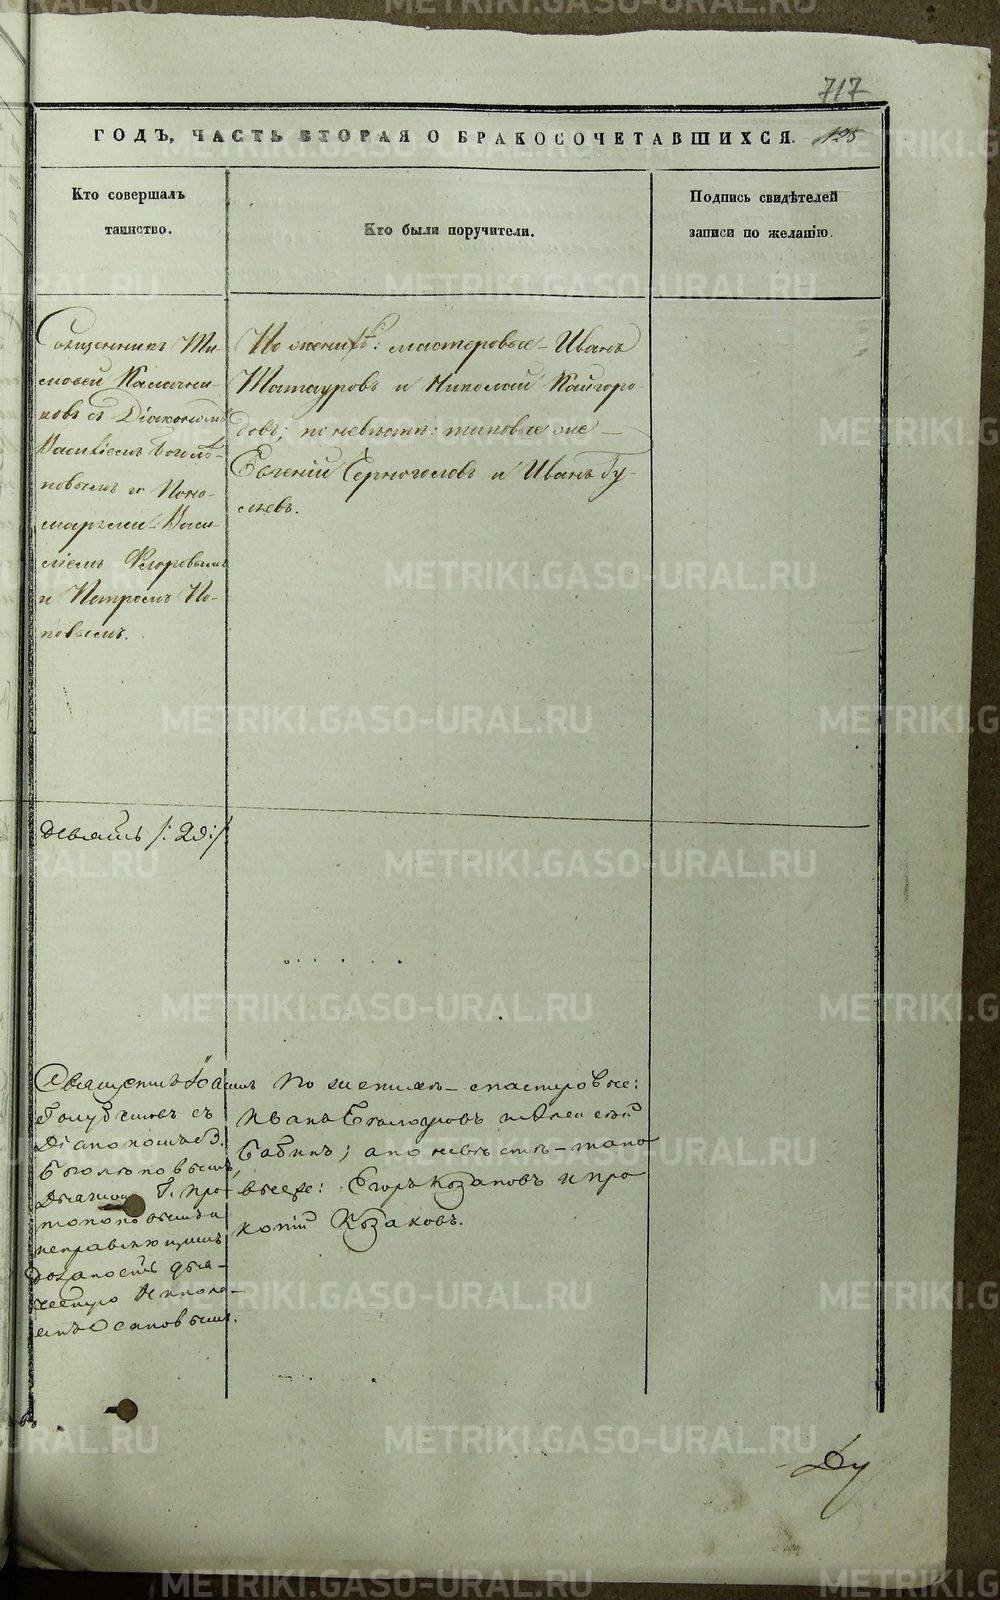 717
ГОДЪ, ЧАСТЬ ВТОРАЯ О БРАКОСОЧЕТАВШИХСЯ. 128
Кто совершалъ
таинство.
Кто были поручители.
Подпись свидѣтелей
записи по желанію.
Священникъ Ти-
мофей Калачни-
ковъ съ Діакономъ
Василіемъ Боголѣ-
повымъ и Поно-
марями Васи-
ліемъ Флоровымъ
и Петромъ По-
повымъ.
По женихѣ: мастеровые Иванъ
Татауровъ и Николай Кайгоро-
довъ; по невѣстѣ: таковые же
Евгеній Черноголовъ и Иванъ Гу-
севъ.
девять /:29:/
Священникъ Іоаннъ
съ
Діакономъ В.
Боголѣповымъ,
Дьячкомъ Г. Про-
топоповымъ и
исправляющимъ
должность дья-
ческую Никола-
емъ Осиповымъ.
По женихѣ - мастеровые:
Иванъ и Алексѣй
Бабинъ; а по невѣстѣ - тако
выеже: Егоръ Козаковъ и Про
копій Козаковъ.
METRIKI.GASO-URAL.RU